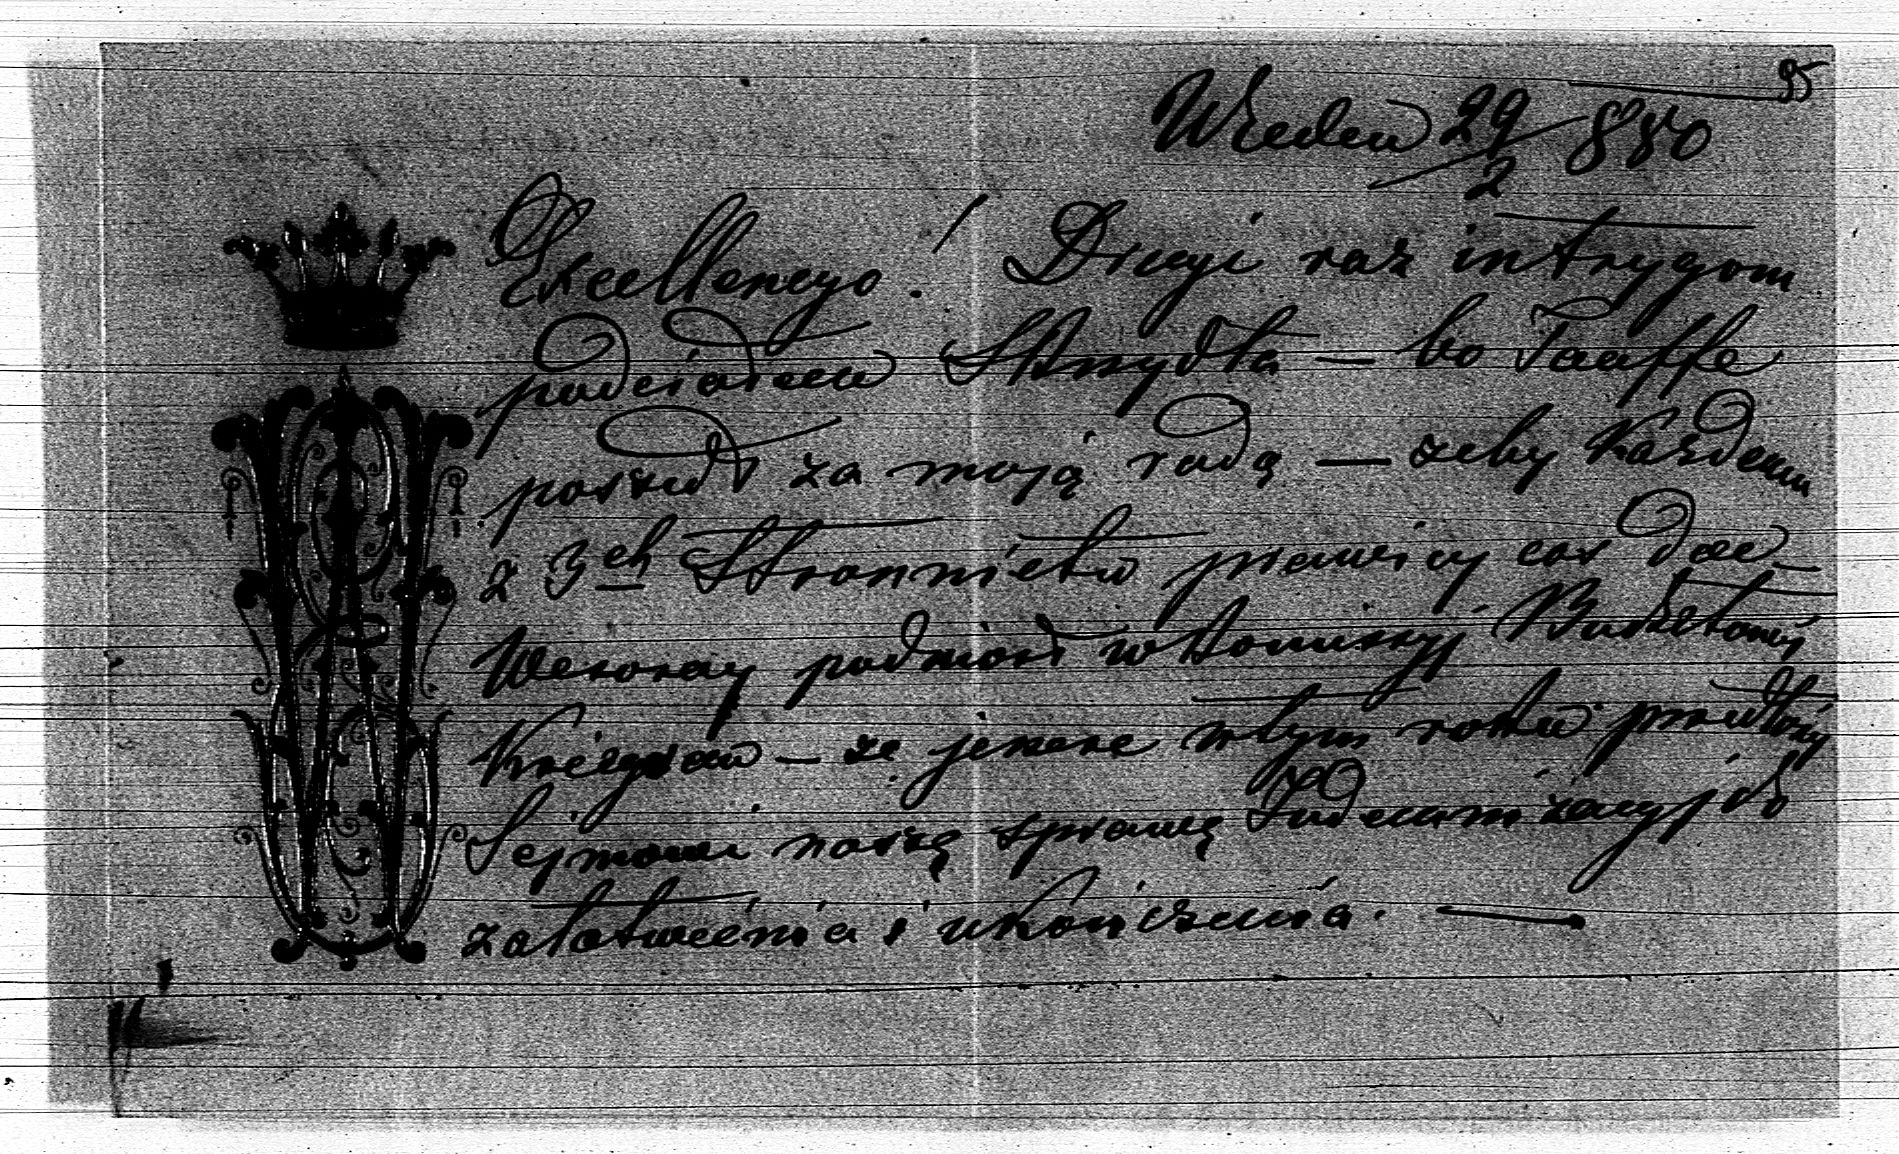 95
Wiedeń 29/2 880
Excellencyo! Drugi raz intrygom
podciąłem Skrzydła — bo Taaffe
poszedł za moją radą — żeby każdemu
z 3ch Stronnictw prawicy coś dać_
Wczoraj podniósł w komissyj Budżetowyj
że jeszcze w tym roku przedłoży
Sejmowi naszą sprawę Indemnizacyj do
załatwienia i ukończenia. —